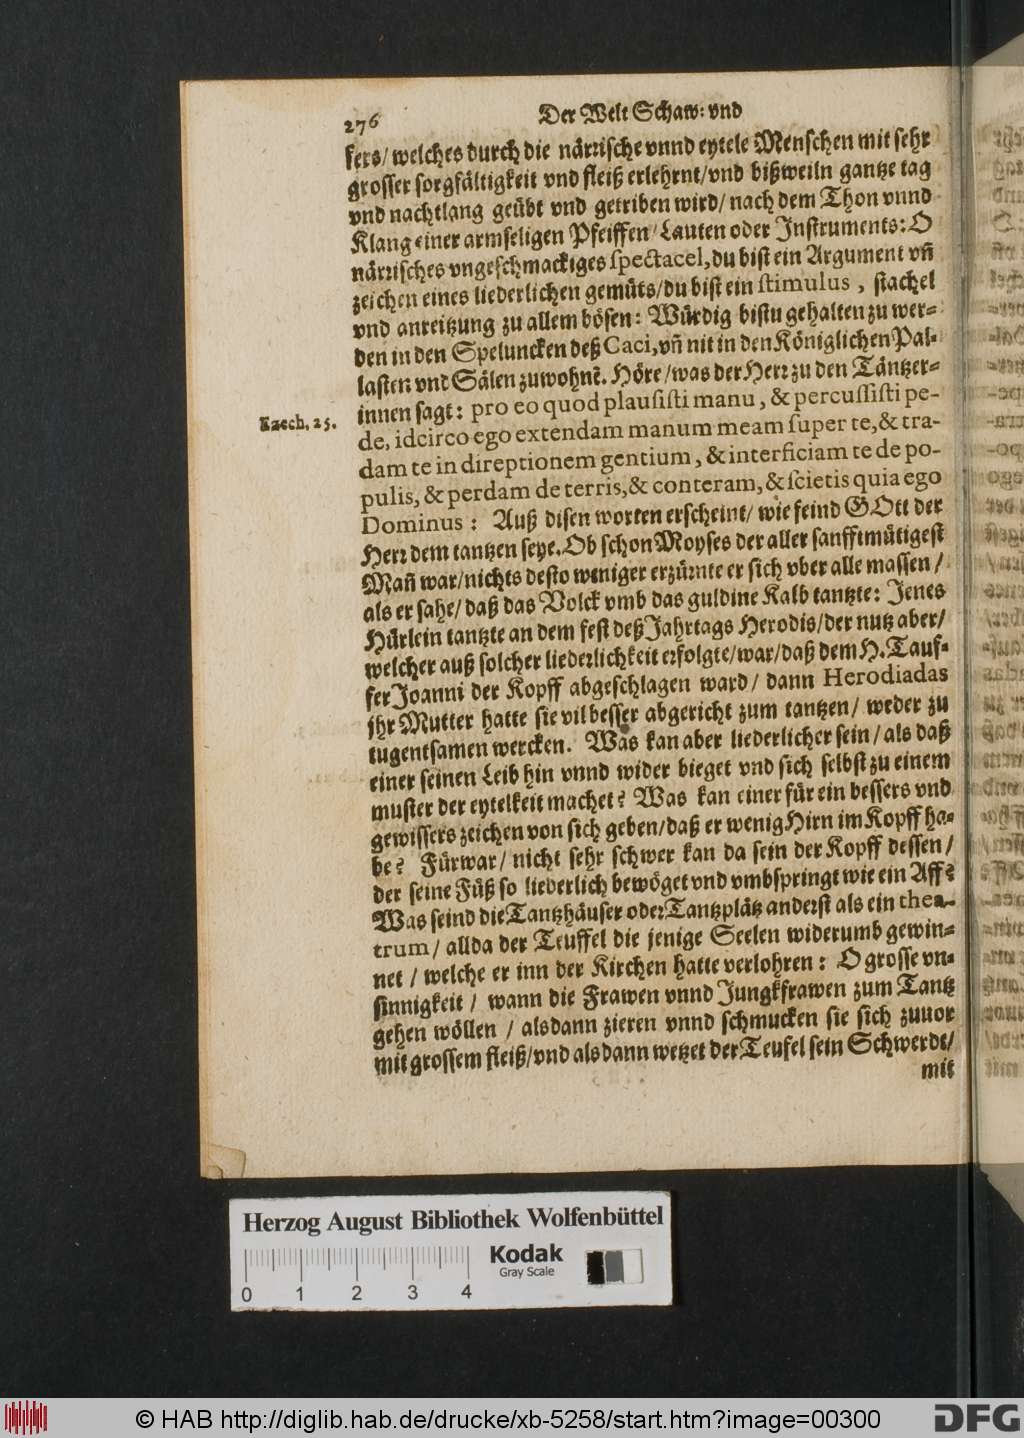 276
Der Welt Schaw: vnd
fers/ welches durch die närrische vnnd eytele Menschen mit sehr
grosser sorgfältigkeit vnd fleiß erlehrnt/vnd bißweiln gantze tag
vnd nachtlang geübt vnd getriben wird/ nach dem Thon vnnd
Klang einer armseligen Pfeiffen/ Lauten oder Instruments: O
närrisches vngeschmackiges spectacel, du bist ein Argument vñ
zeichen eines liederlichen gemüts/du bist ein stimulus, stachel
vnd anreitzung zu allem bösen: Würdig bistu gehalten zu wer-
den in den Spelunckenn deß Caci, vñ nit in den Königlichen Pal-
lasten vnd Sälen zuwohnē. Höre/ was der Herr zu den Täntzer-
Ezech. 25.
innen sagt: pro eo quod plausisti manu, & percussisti pe-
de, idcirco ego extendam manum meam super te, & tra-
dam te in direptionem gentium, & interficiam te de po-
pulis, & perdam de terris, & conteram, & scietis quia ego
Dominus: Auß disen worten erscheint/ wie feind GOtt der
Herr dem tantzen seye. Ob schon Moyses der aller sanfftmütigest
Mañ war/nichts desto weniger erzürnte er sich vber alle massen/
als er sahe/ daß das Volck vmb das guldine Kalb tantzte: Jenes
Hürlein tantzte an dem fest deß Jahrtags Herodis/der nutz aber/
welcher auß solcher liederlichkeit erfolgte/war/daß dem H. Tauf-
fer Joanni der Kopff abgeschlagen ward/ dann Herodiadas
jhr Mutter hatte sie vil besser abgericht zum tantzen/ weder zu
tugentsamen wercken. Was kan aber liederlicher sein/ als daß
einer seinen Leib hin vnnd wider bieget vnd sich selbst zu einem
muster der eytelkeit machet? Was kan einer für ein bessers vnd
gewissers zeichen von sich geben/daß er wenig Hirn im Kopff ha-
be? Fürwar/ nicht sehr schwer kan da sein der Kopff dessen/
der seine Füß so liederlich bewöget vnd vmbspringt wie ein Aff?
Was seind die Tantzhäuser oder Tantzplätz anderst als ein thea-
trum/ allda der Teuffel die jenige Seelen widerumb gewin-
net/ welche er inn der Kirchen hatte verlohren: O grosse vn-
sinnigkeit/ wann die Frawen vnnd Jungkfrawen zum Tantz
gehen wöllen/ alsdann zieren vnnd schmucken sie sich zuuor
mit grossem fleiß/vnd alsdann wetzet der Teufel sein Schwerdt/
mit
Herzog August Bibliothek Wolfenbüttel
Kodak
Gray Scale
0 1 2 3 4
© HAB http://diglib.hab.de/drucke/xb-5258/start.htm?image=00300
DFG